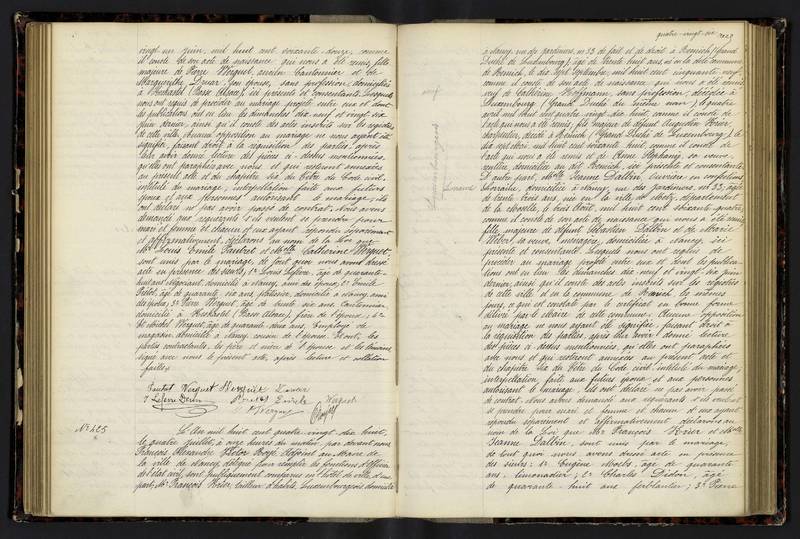 vingt un juin, mil huit cent soixante douze, comme
il conste de son acte de naissance qui nous a été remis, fille
majeure de Pierre Wersquet, ancien Cantonnier et de
Marguerithe, son épouse, sans profession, domiciliés
à (Basse Alsace), ici présents et consentants. Lesquels
nous ont requis de procéder au mariage projeté entre eux et dont
les publications ont eu lieu les dimanches dix neuf et vingt six
juin dernier, ainsi qu'il conste des actes inscrits sur les registres
de cette ville. Aucune opposition au mariage ne nous ayant été
signifiée, faisant droit à la réquisition des parties, après
leur avoir donné lecture des pièces ci-dessus mentionnées,
qu'elles ont paraphées avec nous et qui resteront annexées
au présent acte et du chapitre six du Titre du Code civil,
intitulé du mariage, interpellation faite aux futurs
époux et aux personnes autorisant le mariage, ils
ont déclaré ne pas avoir passé de contrat. Nous avons
demandé aux requérants s'ils veulent se prendre pour
mari et femme et chacun d'eux ayant répondu séparément
et affirmativement, déclarons au nom de la Loi que
Mr Louis Emile Pautrat et Melle Catherine Wersquet,
sont unis par le mariage, de tout quoi nous avons dressé
acte en présence des sieurs; 1° Louis Lefèvre, âgé de quarante-
huit ans négociant domicilié à Nancy, ami des époux; 2° Emile
âgé de quarante six ans, domicilié à Nancy, ami
des époux; 3° Pierre Wersquet, âgé de trente six ans Cantonnier,
domicilié à (Basse Alsace), frère de l'épouse; 4°
et Michel Wersquet, âgé de quarante deux ans, Employé de
magasin, domicilié à Nancy, cousin de l'épouse. Et ont, les
parties contractantes, les père et mère de l'épouse et les témoins
signé avec nous le présent acte, après lecture et collation
faites.
Pautrat Wersquet
Lefèvre Emile Wersquet
N° 425
L'an mil huit cent quatre-vingt dix huit,
le quatre juillet, à onze heures du matin, par devant nous
François Alexandre Victor Adjoint au Maire de
la ville de Nancy, délégué pour remplir les fonctions d'Officier
de l'état civil, sont publiquement comparus en l'hôtel de ville, d'une
part; Mr François Krier, tailleur d'habits, Luxembourgeois, domicilié
quatre-vingt-six
à Nancy, rue des Jardiniers, n° 33 de fait et de droit à Remich (Grand
Duché de Luxembourg), âgé de trente huit ans, né en la dite commune
de Remich, le dix sept Septembre, mil huit cent cinquante neuf,
comme il conste de son acte de naissance qui nous a été remis
veuf de Catherine Hoffmann, sans profession, décédée à
Luxembourg (Grand Duché du même nom), le quatre
avril mil huit cent quatre-vingt dix huit, comme il conste de
l'acte qui nous a été remis, fils majeur de défunt Augustin Krier,
charpentier, décédé à Remich (Grand Duché de Luxembourg) le
dix sept mil huit cent soixante huit, comme il conste de
l'acte qui nous a été remis et de Anne sa veuve,
rentière, domiciliée au dit Remich, ici présente et consentante.
D'autre part, Melle Jeanne Dalbin, ouvrière en confections
Lorraine, domiciliée à Nancy, rue des Jardiniers, n° 33, âgée
de trente trois ans, née en la ville de Metz, département
de la Moselle, le trois Août, mil huit cent soixante quatre,
comme il conste de son acte de naissance qui nous a été remis
fille majeure de défunt Sébastien Dalbin et de Marie
Weber, sa veuve, ménagère, domiciliée à Nancy, ici
présente et consentante. Lesquels nous ont requis de
procéder au mariage projeté entre eux et dont les publica-
tions ont eu lieu les dimanches dix neuf et vingt six juin
dernier, ainsi qu'il conste des actes inscrits sur les registres
de cette ville et en la commune de Remich, les mêmes
jours, ce qui est constaté par le certificat en bonne forme
délivré par le Maire de cette commune. Aucune opposition
au mariage ne nous ayant été signifiée, faisant droit à
la réquisition des parties, après leur avoir donné lecture
des pièces ci-dessus mentionnées, qu'elles ont paraphées
avec nous et qui resteront annexées au présent acte et
du chapitre six du Titre du Code civil, intitulé du mariage,
interpellation faite aux futurs époux et aux personnes
autorisant le mariage, ils ont déclaré ne pas avoir passé
de contrat. Nous avons demandé aux requérants s'ils veulent
se prendre pour mari et femme et chacun d'eux ayant
répondu séparément et affirmativement, déclarons au
nom de la Loi que Mr François Krier et Melle
Jeanne Dalbin, sont unis par le mariage,
de tout quoi nous avons dressé acte en présence
des sieurs: 1° Eugène âgé de quarante
ans, limonadier; 2° Charles Didon, âgé
de quarante-huit ans ferblantier; 3° Pierre